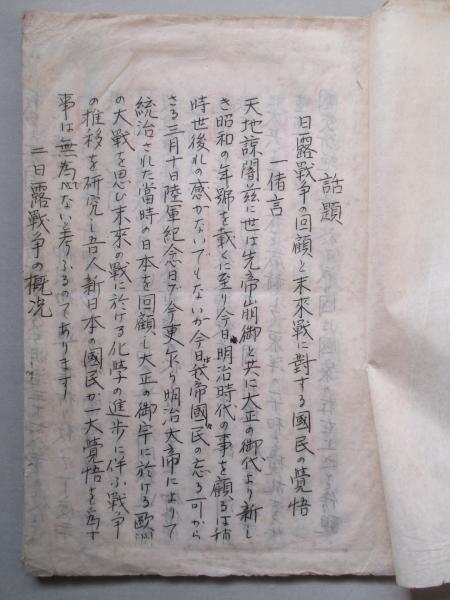 話題
日露戦争の回顧と末來戦に対する国民の覺悟
一緒言
天地諒闇茲に世は先帝崩御と共に大正の御代より新し
き昭和の年號を戴くに至り今日明治時代の事を顧るは稍
時世後れの感がないでもないが今日我帝國民の忘る可から
さる三月十日陸軍紀念日が今更乍ら明治大帝によりて
統治された當時の日本を回顧し大正の御宇に於ける歐洲
の大戰を思ひ末來の戰に於ける化學の進歩に伴ふ戰争
の推移を研究し吾人新日本の國民が一大覺悟を為す
事は無為でないと考ふるのであります
二日露戰争の概況